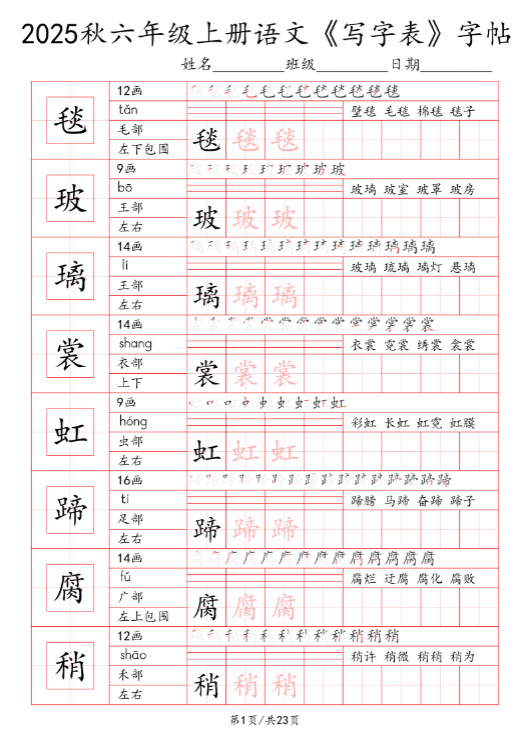 2025秋六年级上册语文《写字表》字帖
姓名________班级________日期________
毯
12画
tǎn
壁毯 毛毯 棉毯 毯子
毛部
左下包围
毯 毯 毯
玻
9画
bō
玻璃 玻室 玻罩 玻房
王部
左右
玻 玻 玻
璃
14画
lí
玻璃 琉璃 璃灯 悬璃
王部
左右
璃 璃 璃
裳
14画
shang
衣裳 霓裳 绣裳 衾裳
衣部
上下
裳 裳 裳
虹
9画
hóng
彩虹 长虹 虹霓 虹膜
虫部
左右
虹 虹 虹
蹄
16画
tí
蹄膀 马蹄 奋蹄 蹄子
足部
左右
蹄 蹄 蹄
腐
14画
fǔ
腐烂 迂腐 腐化 腐败
广部
左上包围
腐 腐 腐
稍
12画
shāo
稍许 稍微 稍稍 稍为
禾部
左右
稍 稍 稍
第1页/共23页